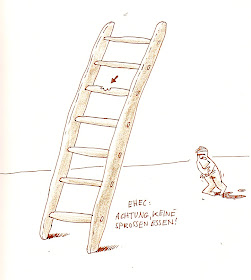 EHEC:
ACHTUNG, KEINE
SPROSSEN ESSEN!